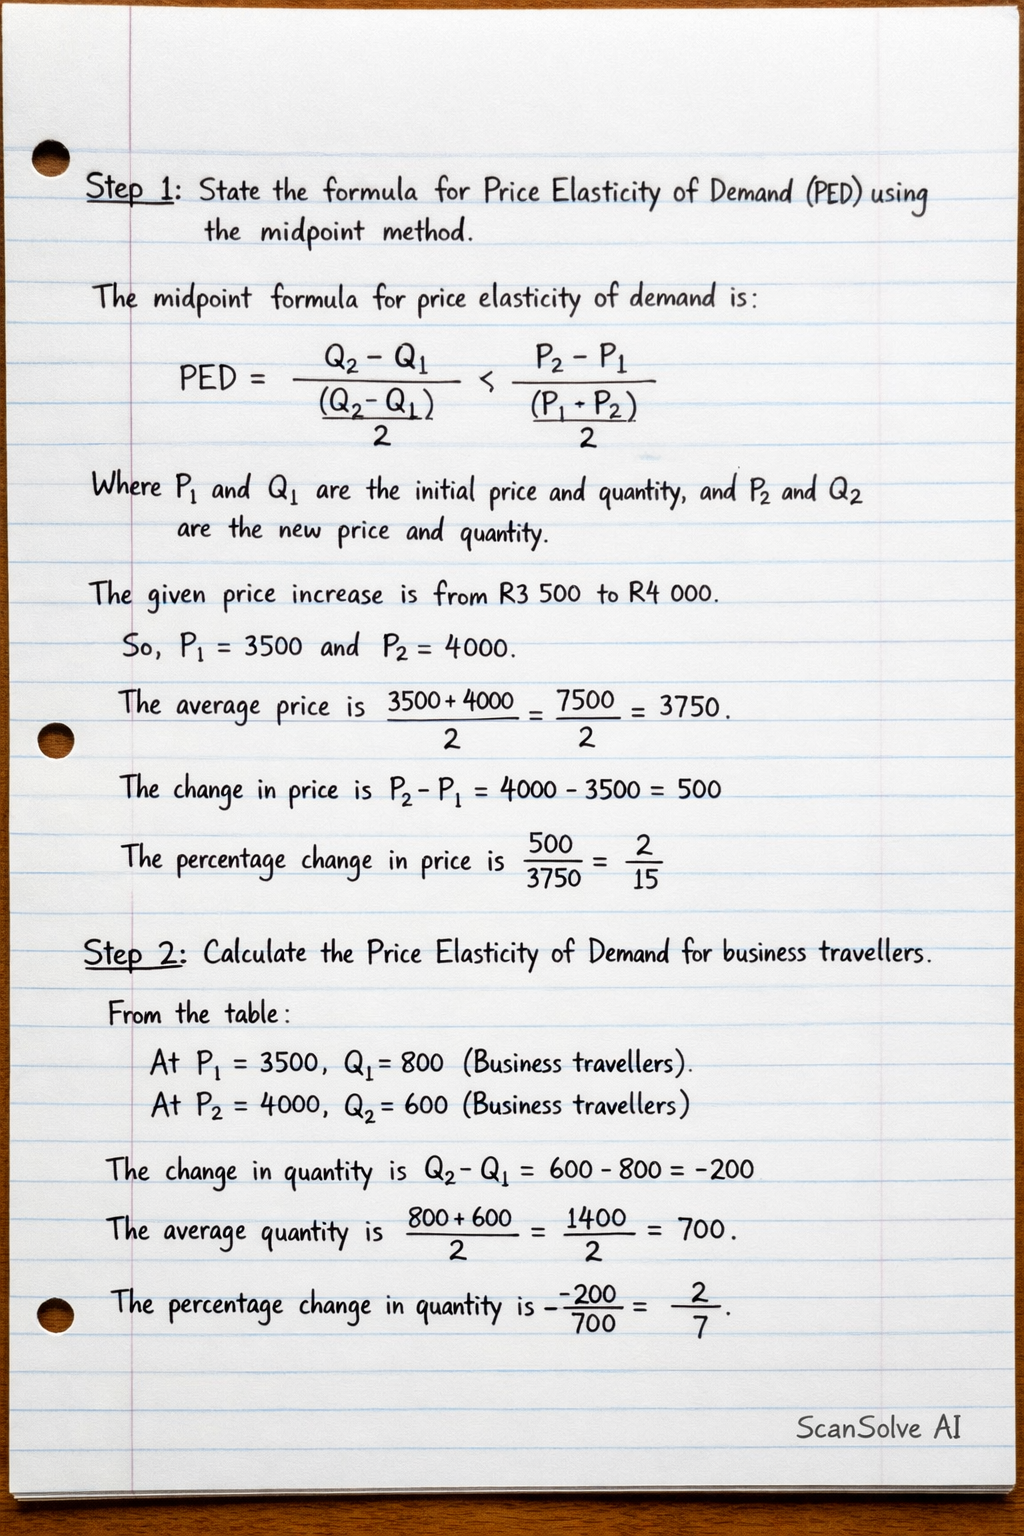 Step 1: State the formula for Price Elasticity of Demand (PED) using
the midpoint method.
The midpoint formula for price elasticity of demand is:
PED = \frac{Q₂ - Q₁}{\frac{(Q₂ - Q₁)}{2}} < \frac{P₂ - P₁}{\frac{(P₁ + P₂)}{2}}
Where P₁ and Q₁ are the initial price and quantity, and P₂ and Q₂
are the new price and quantity.
The given price increase is from R3 500 to R4 000.
So, P₁ = 3500 and P₂ = 4000.
The average price is \frac{3500 + 4000}{2} = \frac{7500}{2} = 3750.
The change in price is P₂ - P₁ = 4000 - 3500 = 500
The percentage change in price is \frac{500}{3750} = \frac{2}{15}
Step 2: Calculate the Price Elasticity of Demand for business travellers.
From the table:
At P₁ = 3500, Q₁ = 800 (Business travellers).
At P₂ = 4000, Q₂ = 600 (Business travellers)
The change in quantity is Q₂ - Q₁ = 600 - 800 = -200
The average quantity is \frac{800 + 600}{2} = \frac{1400}{2} = 700.
The percentage change in quantity is -\frac{-200}{700} = \frac{2}{7}.
ScanSolve AI